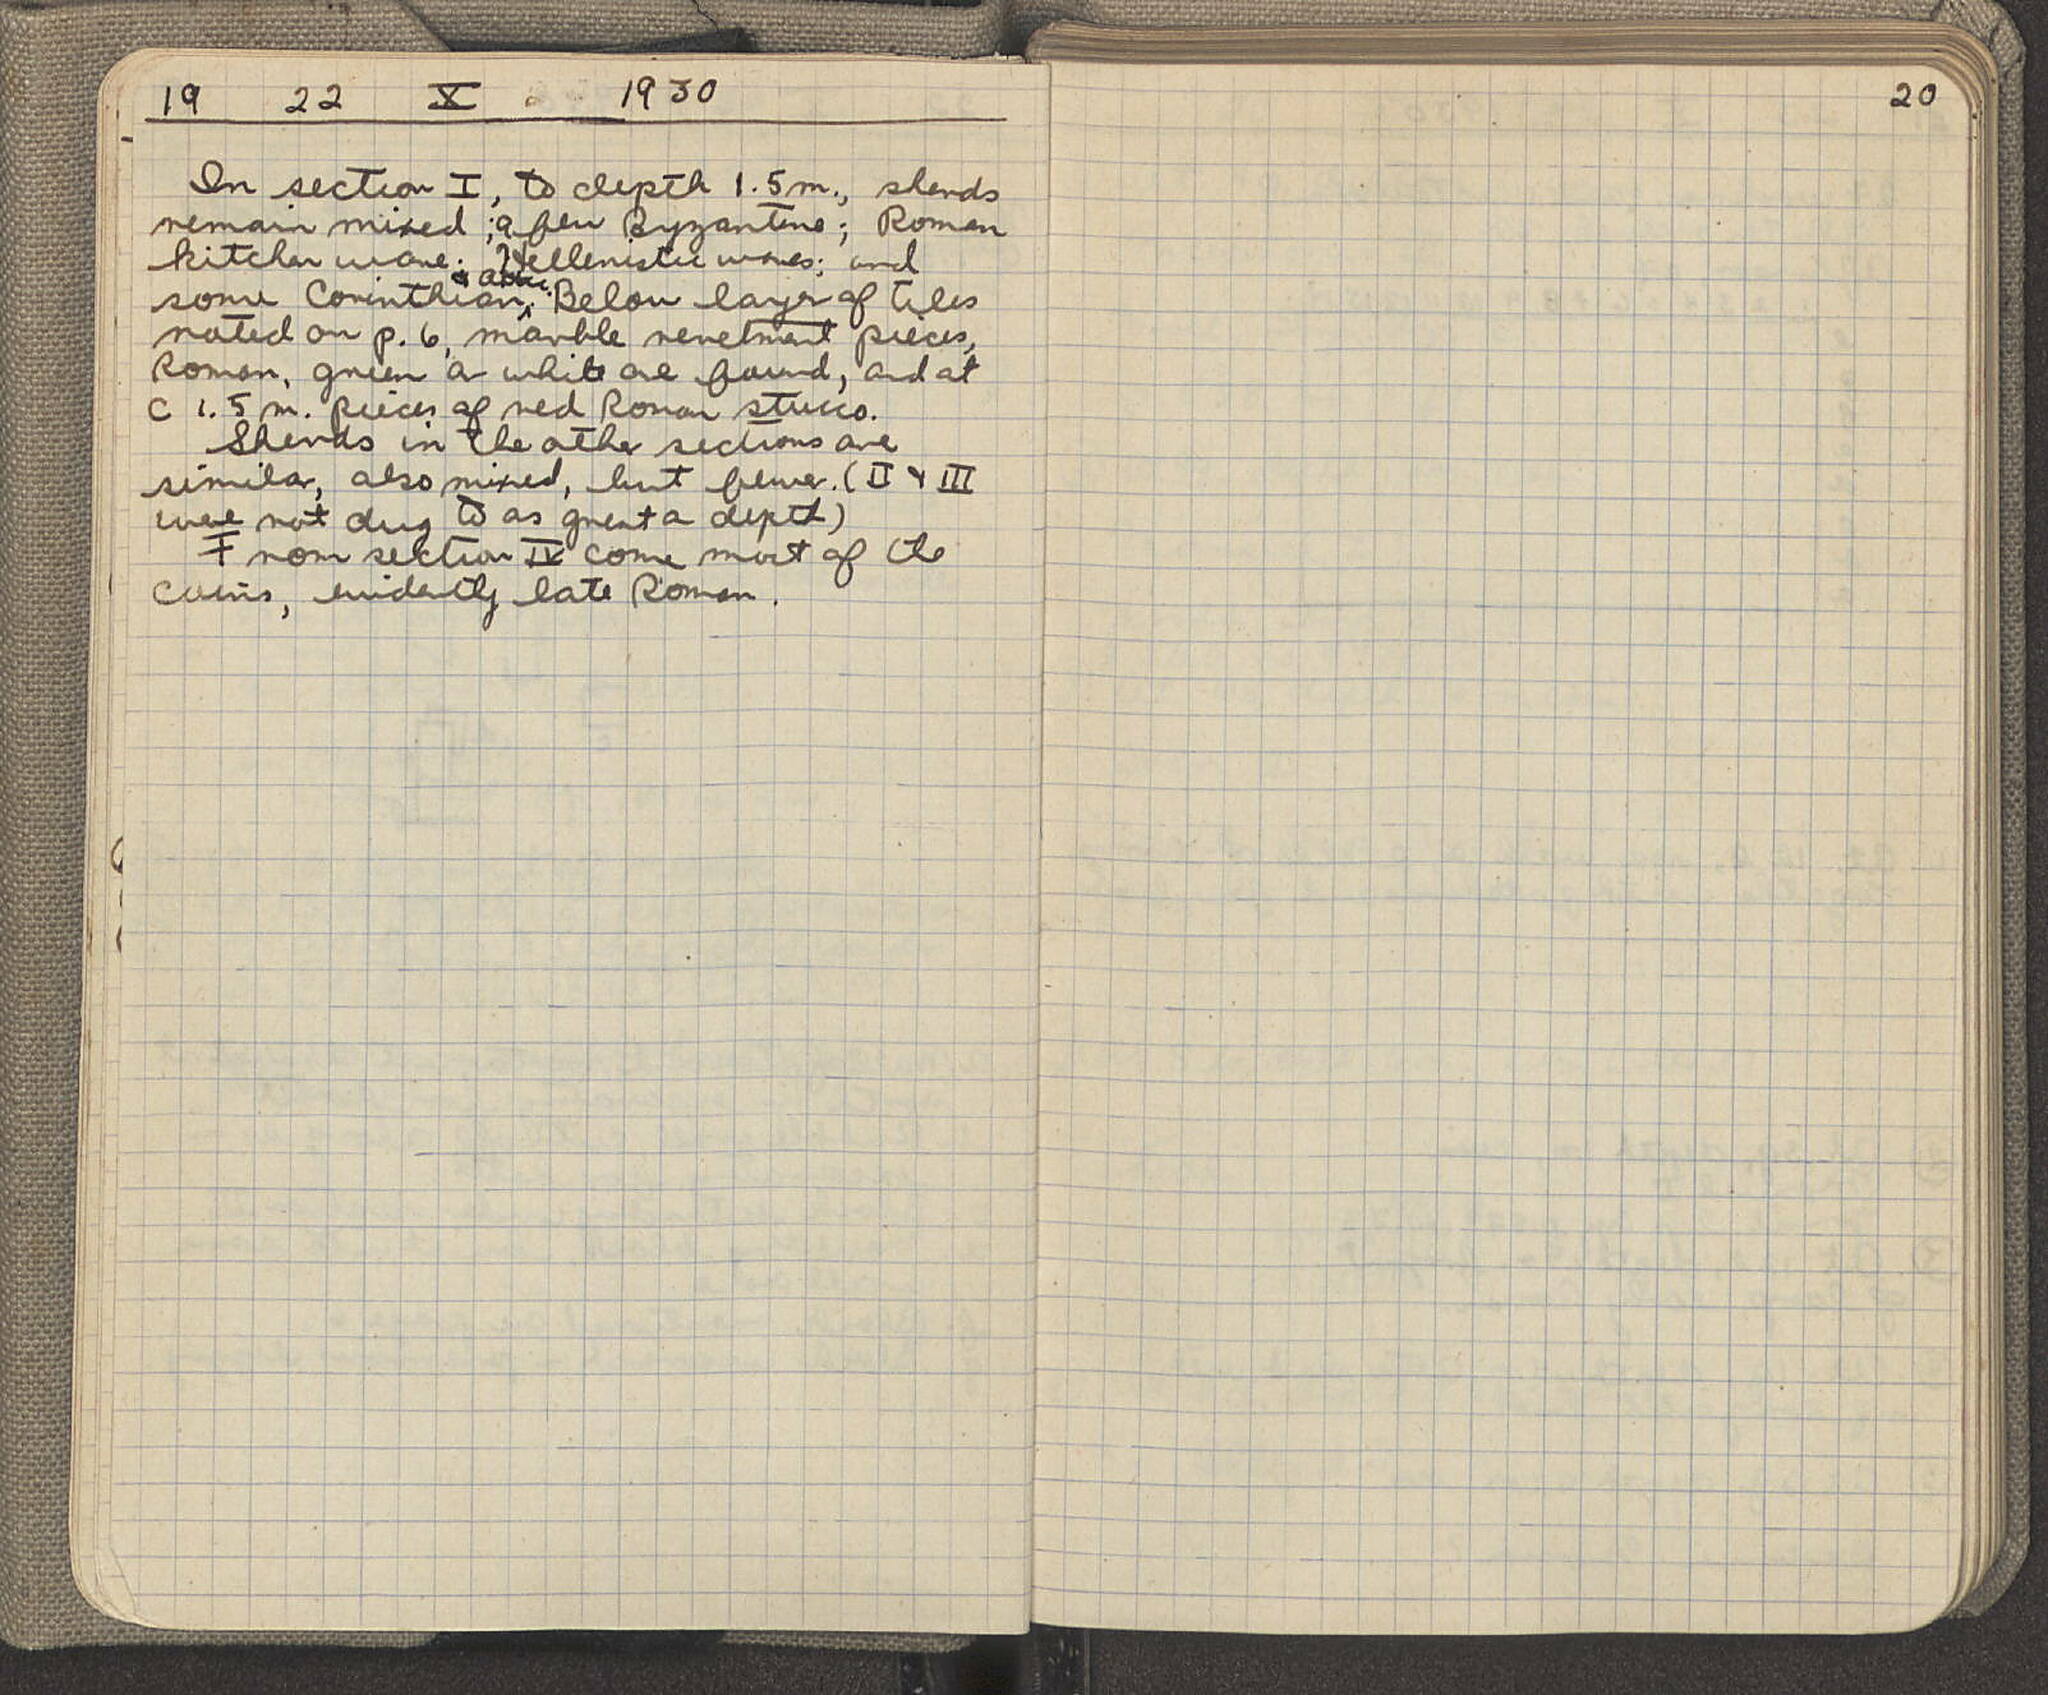 19 22 X 1930
In section I, to depth 1.5 m., sherds
remain mixed; a few Byzantine; Roman
kitchen ware; Hellenistic wares; and
some Corinthian & Attic. Below layer of tiles
noted on p. 6, marble revetment pieces,
Roman, green & white are found, and at
c 1.5 m. pieces of red Roman stucco.
Sherds in the other sections are
similar, also mixed, but fewer. (II & III
were not dug to as great a depth)
From section IV come most of the
coins, evidently late Roman.
20